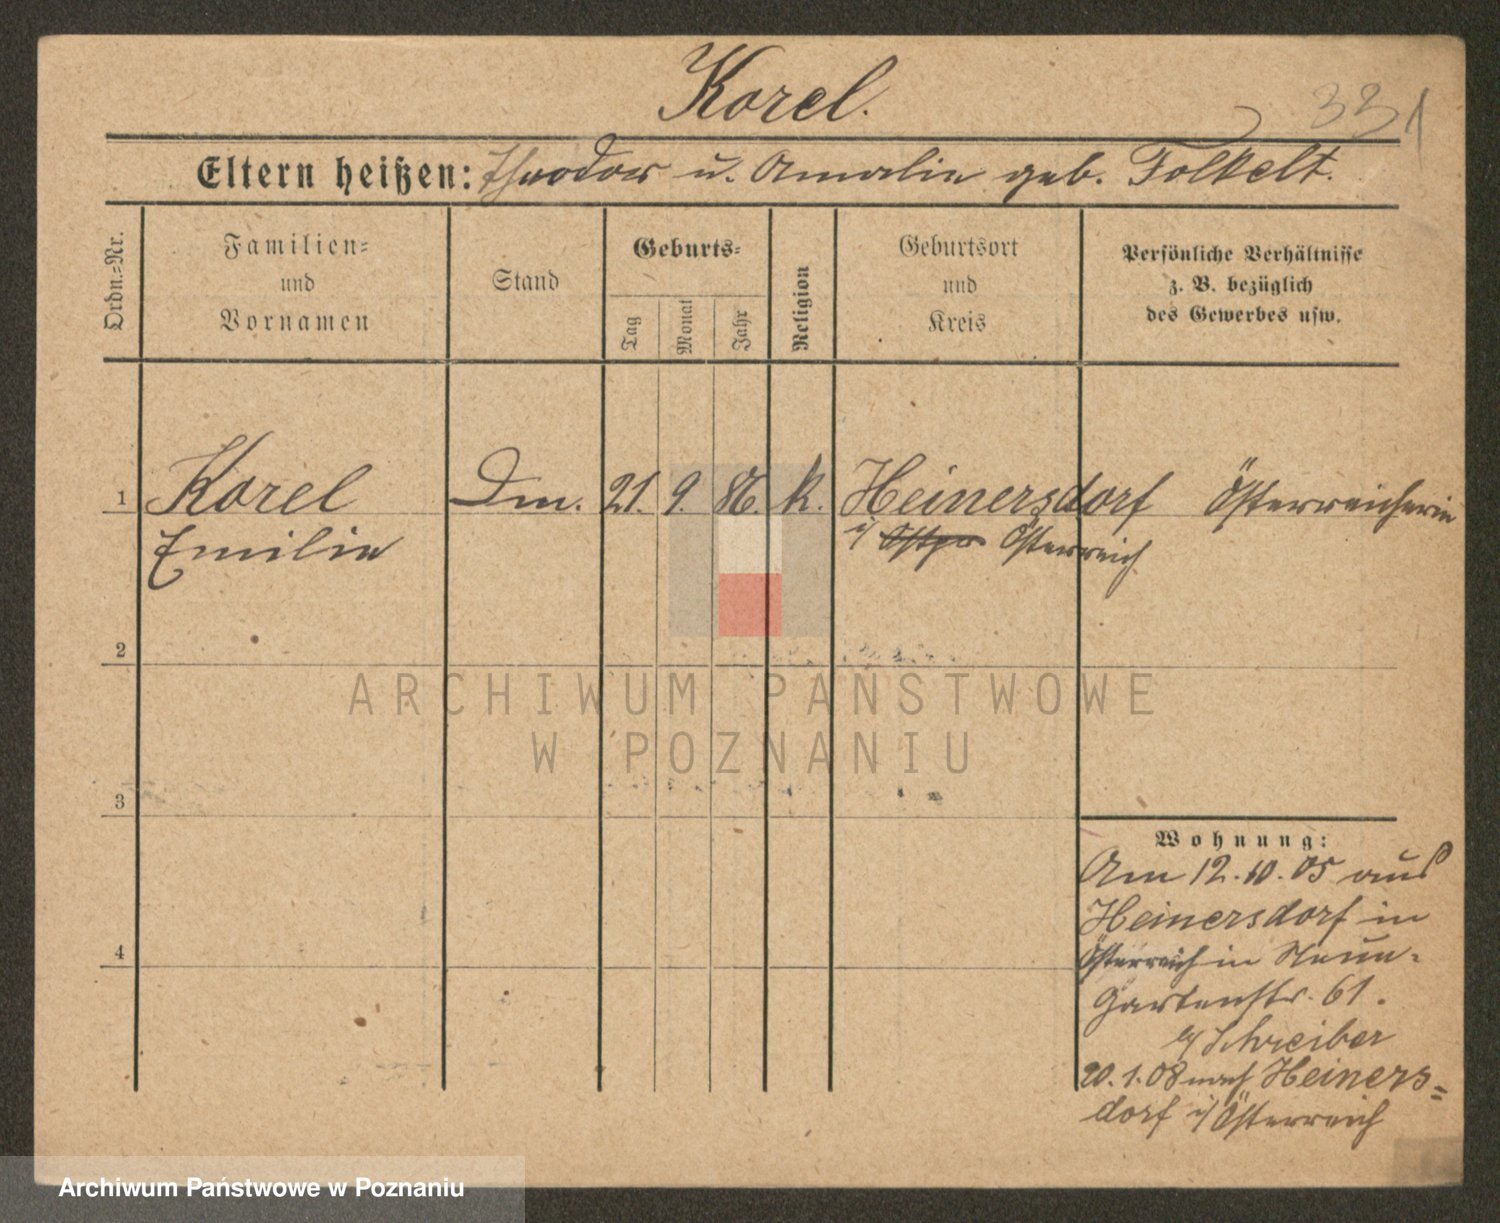 Korel.
331
Eltern heißen: Theodor u. Amalie geb. Folkelt.
Ordn.=Nr.
Familien=
und
Vornamen
Stand
Geburts=
Tag
Monat
Jahr
Religion
Geburtsort
und
Kreis
Persönliche Verhältnisse
z. B. bezüglich
des Gewerbes usw.
1 Korel Dm. 21. 9. 86. k. Heinersdorf Österreicherin
Emilie i/ Ostpr Österreich
2
ARCHIWUM PAŃSTWOWE
W POZNANIU
3
4
Wohnung:
Am 12.10.05 aus
Heinersdorf in
Österreich in
Gartenstr. 61.
b/ Schreiber
20.1.08 nach Heiners=
dorf i/ Österreich
Archiwum Państwowe w Poznaniu